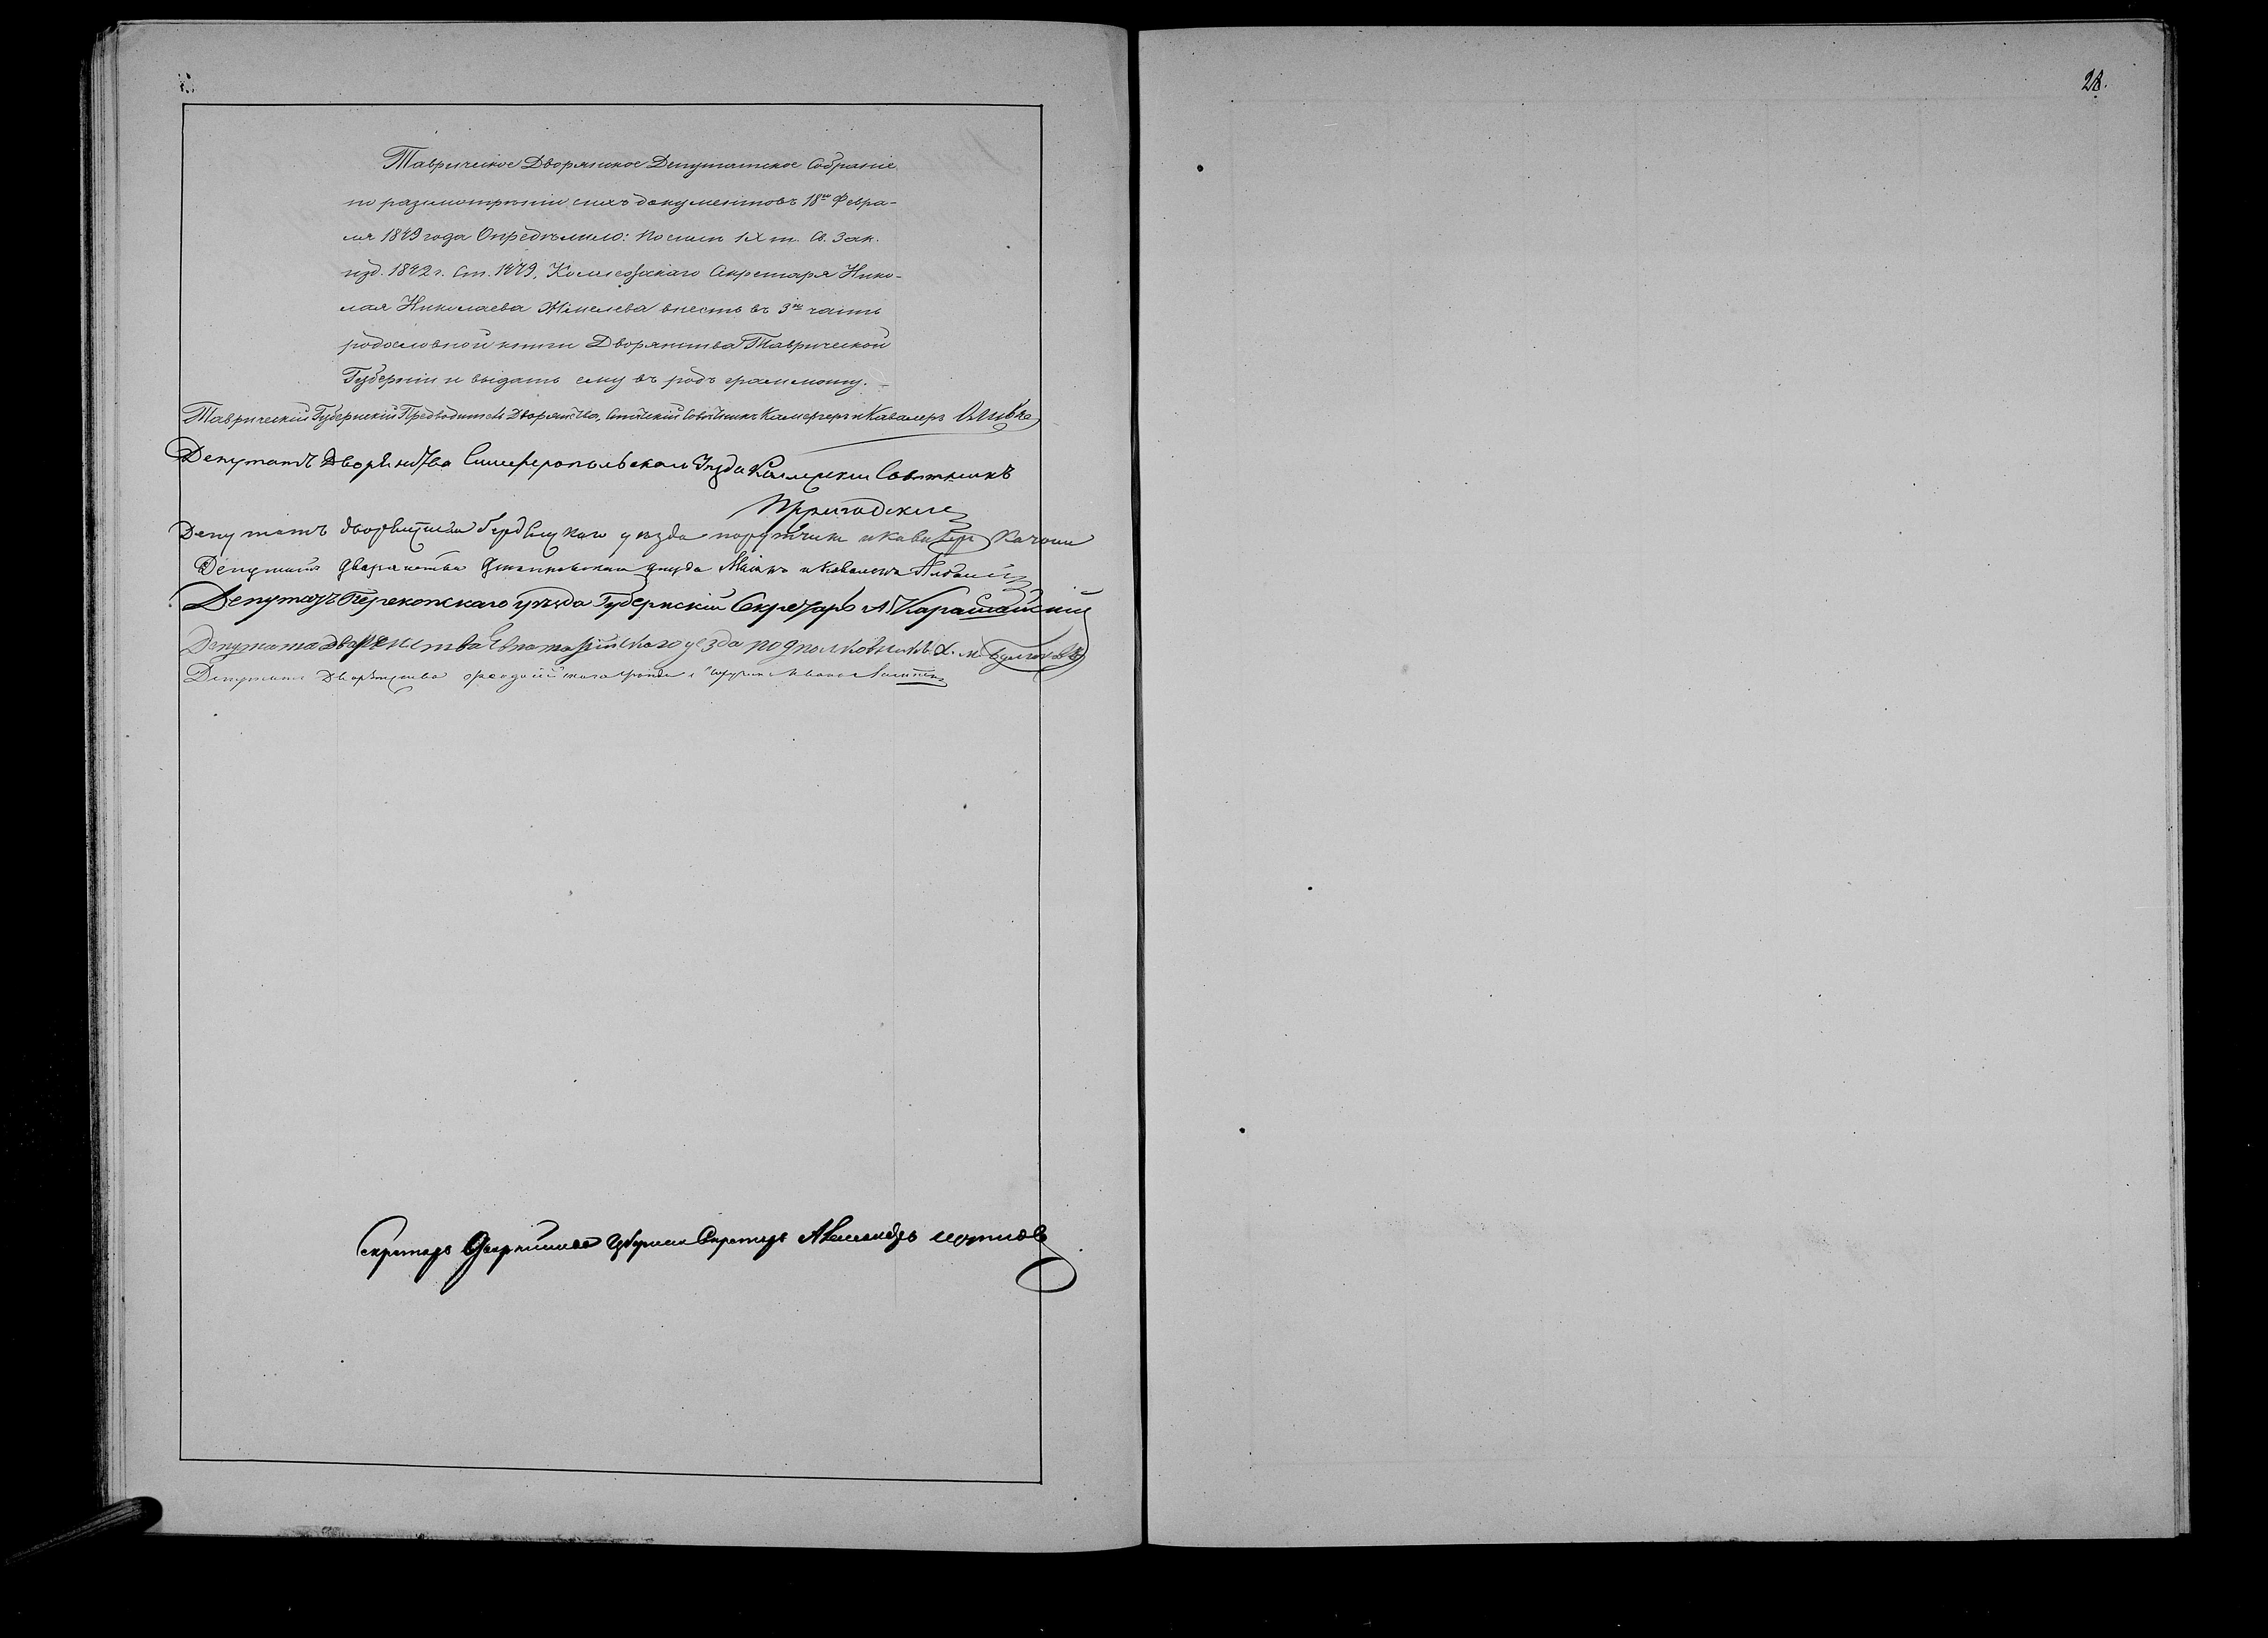 Таврическое Дворянское Депутатское Собраніе
по разсмотрѣніи сихъ документовъ 18го Февра-
ля 1849 года Опредѣлило: По силѣ IX т. Св. Зак.
изд. 1842 г. Ст. 1479, Коллежскаго Секретаря Нико-
лая Николаева внесть въ 3ю часть
родословной книги Дворянства Таврической
Губерніи и выдать ему въ родъ граммоту.
Таврическій Губернскій Предводитель Дворянства, Статскій Совѣтникъ Камергеръ и Кавалеръ Оливъ
Депутатъ Дворянства Симферопольскаго Уѣзда Коллежскій Совѣтникъ
Депутатъ дворянства уѣзда порутчикъ и кавалеръ Качони
Депутатъ дворянства Днѣпровскаго уѣзда и Кавалеръ
Депутатъ Перекопскаго уѣзда Губернскій Секретарь А Карашайскій
Депутатъ Дворянства Евпаторійскаго уезда подполковникъ Х. М. Булгаковъ
Депутатъ Дворянства Феодосійскаго уѣзда
Секретарь Дворянства Губернскій Секретарь Александръ
28.